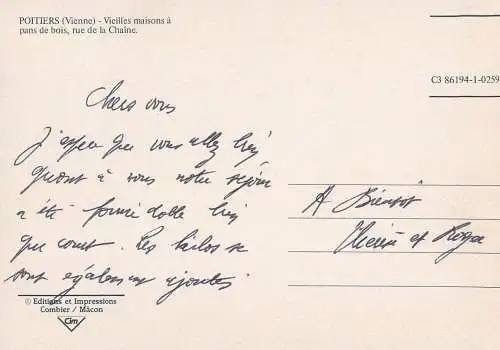 POITIERS (Vienne) - Vieilles maisons à
pans de bois, rue de la Chaîne.
C3 86194-1-0259
Chers vous
J'espère que vous allez bien
quant à vous notre séjour
a été formidable bien
que court. Les kilos se
sont également ajoutés
A Bientôt
et Roger
© Editions et Impressions
Combier / Mâcon
Cim